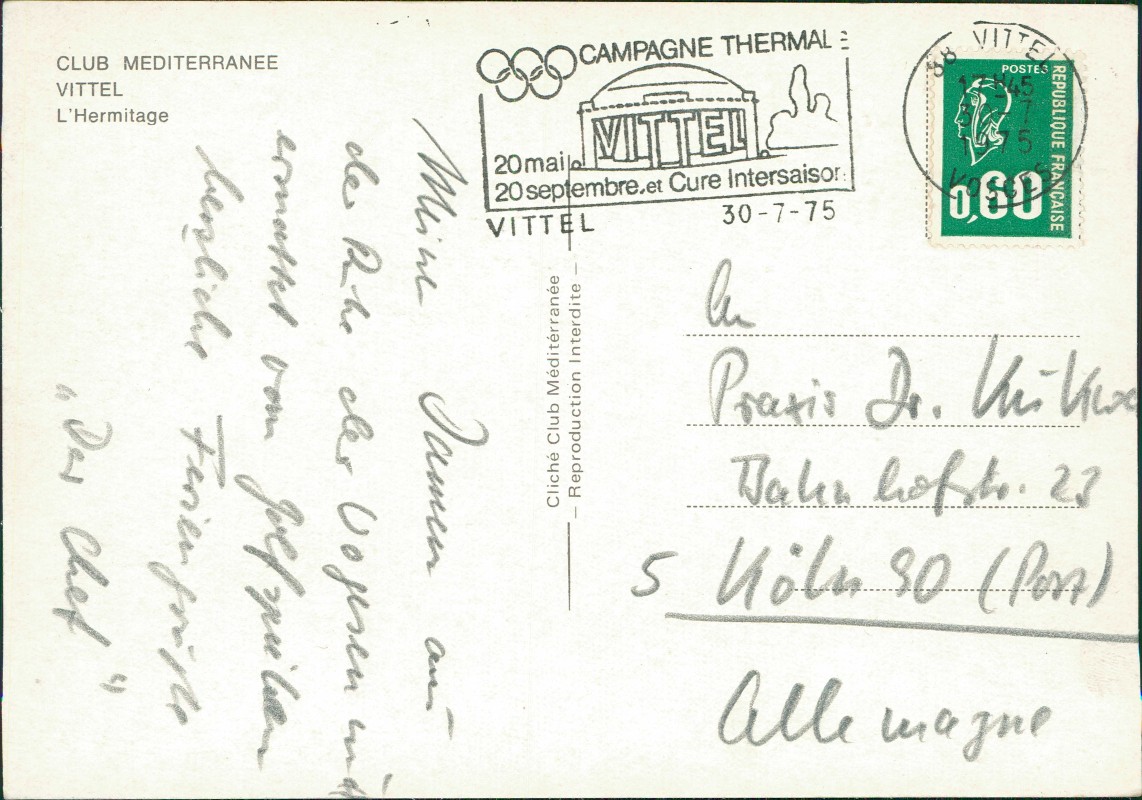 CLUB MEDITERRANEE
VITTEL
L'Hermitage
CAMPAGNE THERMALE
VITTEL
20 mai
20 septembre. et Cure Intersaison
VITTEL 30-7-75
88 VITTEL
17H45
30 7
1975
VOSGES
POSTES
REPUBLIQUE FRANÇAISE
0,60
Cliché Club Méditérranée
– Reproduction Interdite –
Meine Damen aus
der Ruhe der Vogesen und
ermattet vom Golfspielen
herzliche Feriengrüße
„Der Chef"
An
Praxis Dr.
Bahnhofstr. 23
5 Köln 90 (Porz)
Allemagne